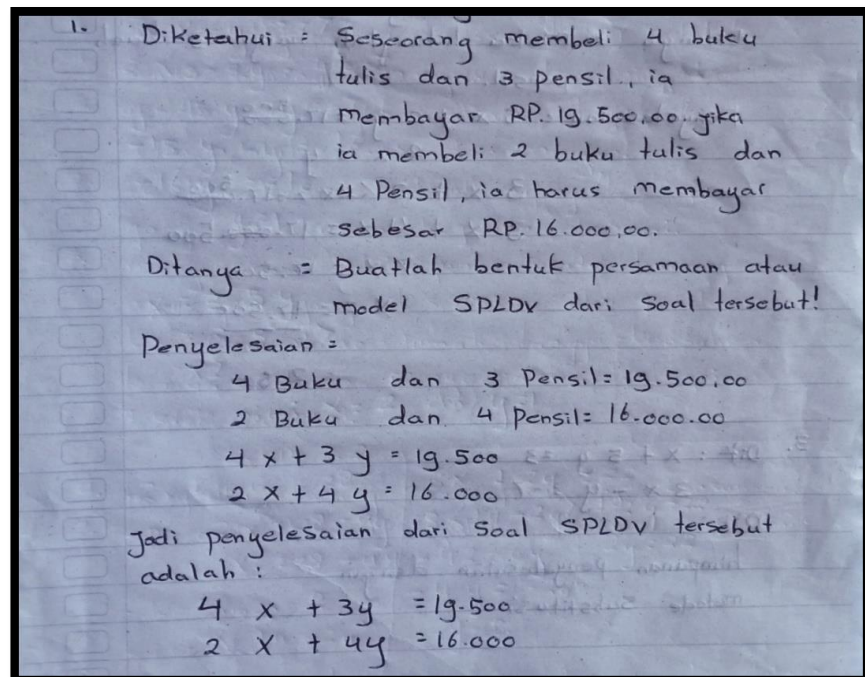 1. Diketahui = Seseorang membeli 4 buku
tulis dan 3 pensil, ia
membayar RP. 19.500,00. jika
ia membeli 2 buku tulis dan
4 Pensil, ia harus membayar
sebesar RP. 16.000,00.
Ditanya = Buatlah bentuk persamaan atau
model SPLDV dari Soal tersebut!
Penyelesaian =
4 Buku dan 3 Pensil = 19.500,00
2 Buku dan 4 Pensil = 16.000.00
4 x + 3 y = 19.500
2 x + 4 y = 16.000
Jadi penyelesaian dari Soal SPLDV tersebut
adalah :
4 x + 3y = 19.500
2 x + 4y = 16.000